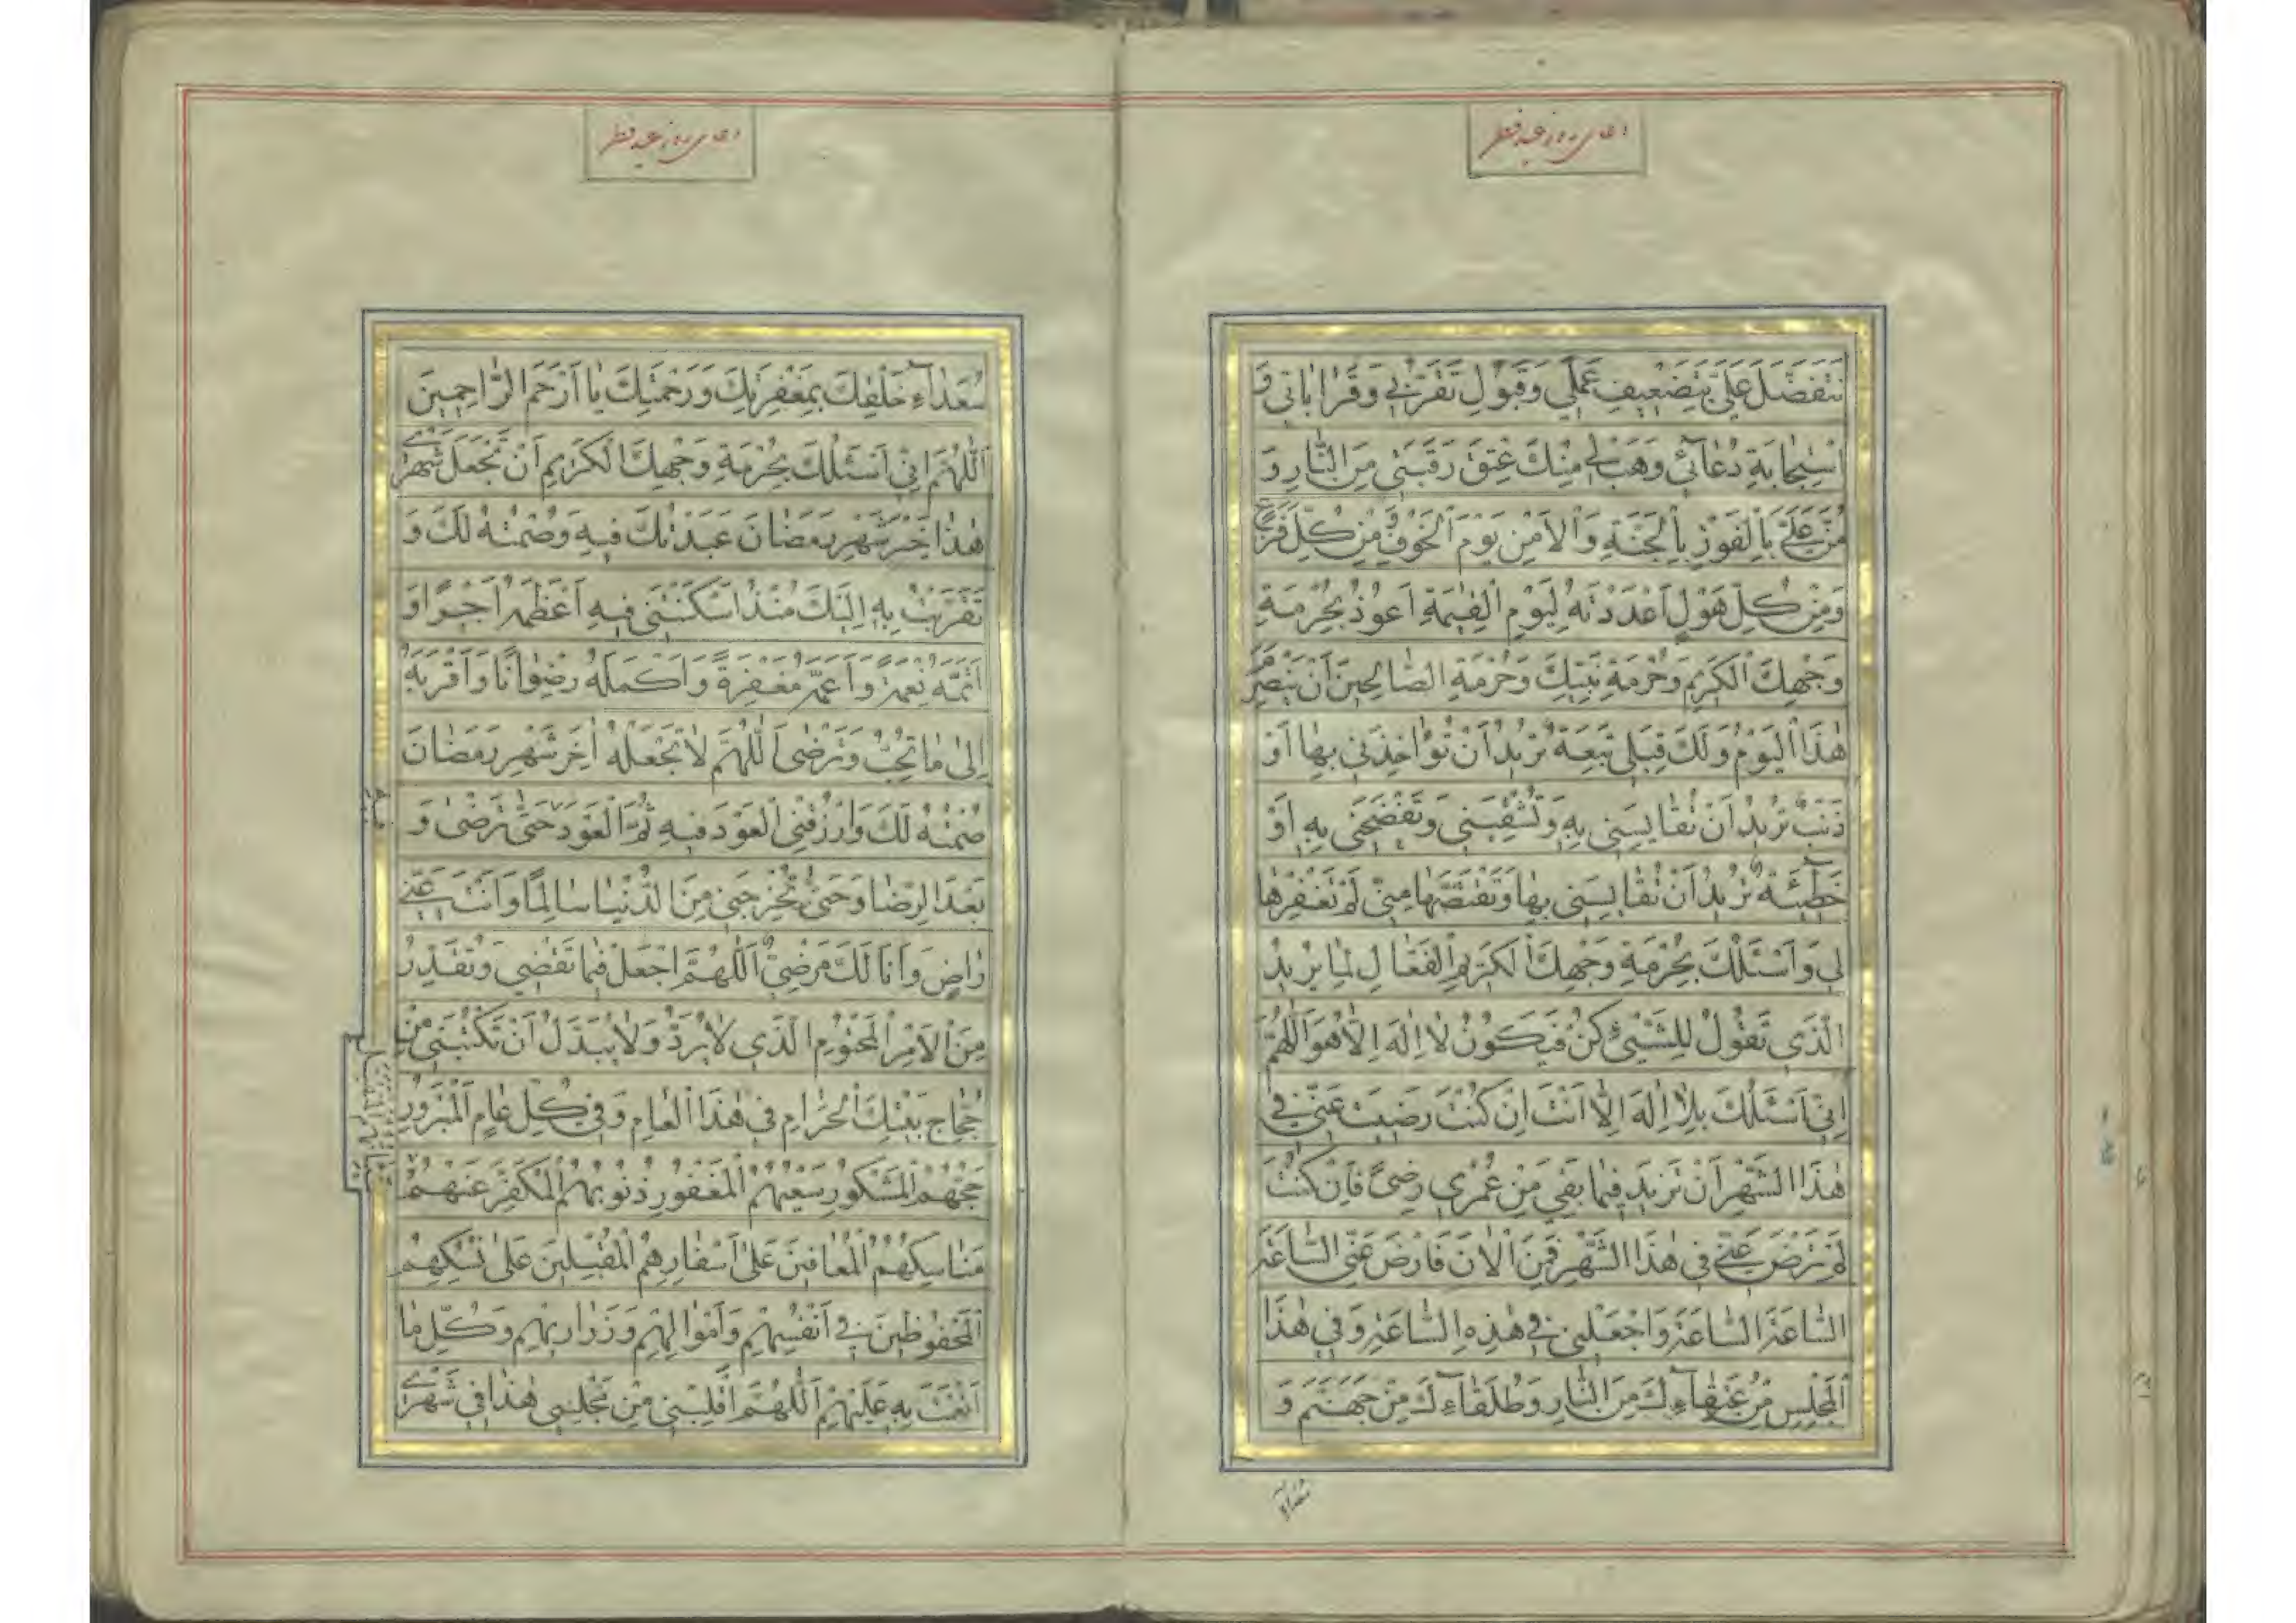 دعای روز عید فطر
تَتَفَضَّلَ عَلَیَّ بِتَضْعِیفِ عَمَلِی وَقَبُولِ تَقَرُّبِی وَقُرُبَاتِی وَ
اسْتِجَابَةِ دُعَائِی وَهَبْ لِی مِنْكَ عِتْقَ رَقَبَتِی مِنَ النَّارِ وَ
مُنَّ عَلَیَّ بِالْفَوْزِ بِالْجَنَّةِ وَالْاَمْنِ یَوْمَ الْخَوْفِ مِنْ كُلِّ فَزَعٍ
وَمِنْ كُلِّ هَوْلٍ اَعْدَدْتَهُ لِیَوْمِ الْقِیٰمَةِ اَعُوذُ بِحُرْمَةِ
وَجْهِكَ الْكَرِیمِ وَحُرْمَةِ نَبِیِّكَ وَحُرْمَةِ الصَّالِحِینَ اَنْ یَنْصَرِمَ
هٰذَا الْیَوْمُ وَلَكَ قِبَلِی تَبِعَةٌ تُرِیدُ اَنْ تُؤَاخِذَنِی بِهَا اَوْ
ذَنْبٌ تُرِیدُ اَنْ تُقَایِسَنِی بِهِ وَتُشْقِیَنِی وَتَفْضَحَنِی بِهِ اَوْ
خَطِٓیئَةٌ تُرِیدُ اَنْ تُقَایِسَنِی بِهَا وَتَقْتَصَّهَا مِنِّی لَمْ تَغْفِرْهَا
لِی وَاَسْئَلُكَ بِحُرْمَةِ وَجْهِكَ الْكَرِیمِ الْفَعَّالِ لِمَا یُرِیدُ
الَّذِی تَقُولُ لِلشَّیْئِ كُنْ فَیَكُونُ لَا اِلٰهَ اِلَّا هُوَ اَللّٰهُمَّ
اِنِّی اَسْئَلُكَ بِلَا اِلٰهَ اِلَّا اَنْتَ اِنْ كُنْتَ رَضِیتَ عَنِّی فِی
هٰذَا الشَّهْرِ اَنْ تَزِیدَ فِیمَا بَقِیَ مِنْ عُمْرِی رِضیً فَاِنْ كُنْتَ
لَمْ تَرْضَ عَنِّی فِی هٰذَا الشَّهْرِ فَمِنَ الْاٰنَ فَارْضَ عَنِّی السَّاعَةَ
السَّاعَةَ السَّاعَةَ وَاجْعَلْنِی فِی هٰذِهِ السَّاعَةِ وَفِی هٰذَا
الْمَجْلِسِ مِنْ عُتَقَآءِكَ مِنَ النَّارِ وَطُلَقَآءِكَ مِنْ جَهَنَّمَ وَ
سُعَدَآءِ
دعای روز عید فطر
سُعَدَآءِ خَلْقِكَ بِمَغْفِرَتِكَ وَرَحْمَتِكَ یَا اَرْحَمَ الرَّاحِمِینَ
اَللّٰهُمَّ اِنِّی اَسْئَلُكَ بِحُرْمَةِ وَجْهِكَ الْكَرِیمِ اَنْ تَجْعَلَ شَهْرِی
هٰذَا خَیْرَ شَهْرِ رَمَضَانَ عَبَدْتُكَ فِیهِ وَصُمْتُهُ لَكَ وَ
تَقَرَّبْتُ بِهِ اِلَیْكَ مُنْذُ اَسْكَنْتَنِی فِیهِ اَعْظَمَهُ اَجْرًا وَ
اَتَمَّهُ نِعْمَةً وَاَعَمَّهُ مَغْفِرَةً وَاَكْمَلَهُ رِضْوَانًا وَاَقْرَبَهُ
اِلٰی مَا تُحِبُّ وَتَرْضٰی اَللّٰهُمَّ لَا تَجْعَلْهُ اٰخِرَ شَهْرِ رَمَضَانَ
صُمْتُهُ لَكَ وَارْزُقْنِی الْعَوْدَ فِیهِ ثُمَّ الْعَوْدَ حَتّٰی تَرْضٰی وَ
بَعْدَ الرِّضَا وَحَتّٰی تُخْرِجَنِی مِنَ الدُّنْیَا سَالِمًا وَاَنْتَ عَنِّی
رَاضٍ وَاَنَا لَكَ مَرْضِیٌّ اَللّٰهُمَّ اجْعَلْ فِیمَا تَقْضِی وَتُقَدِّرُ
مِنَ الْاَمْرِ الْمَحْتُومِ الَّذِی لَا یُرَدُّ وَلَا یُبَدَّلُ اَنْ تَكْتُبَنِی مِنْ
حُجَّاجِ بَیْتِكَ الْحَرَامِ فِی هٰذَا الْعَامِ وَفِی كُلِّ عَامٍ الْمَبْرُورِ
حَجُّهُمْ الْمَشْكُورِ سَعْیُهُمُ الْمَغْفُورِ ذُنُوبُهُمُ الْمُكَفَّرِ عَنْهُمْ
مَنَاسِكُهُمُ الْمُعَافَیْنَ عَلٰی اَسْفَارِهِمُ الْمُقْبِلِینَ عَلٰی نُسُكِهِمْ
الْمَحْفُوظِینَ فِی اَنْفُسِهِمْ وَاَمْوَالِهِمْ وَذَرَارِیهِمْ وَكُلِّ مَا
اَنْعَمْتَ بِهِ عَلَیْهِمْ اَللّٰهُمَّ اقْلِبْنِی مِنْ مَجْلِسِی هٰذَا فِی شَهْرِی